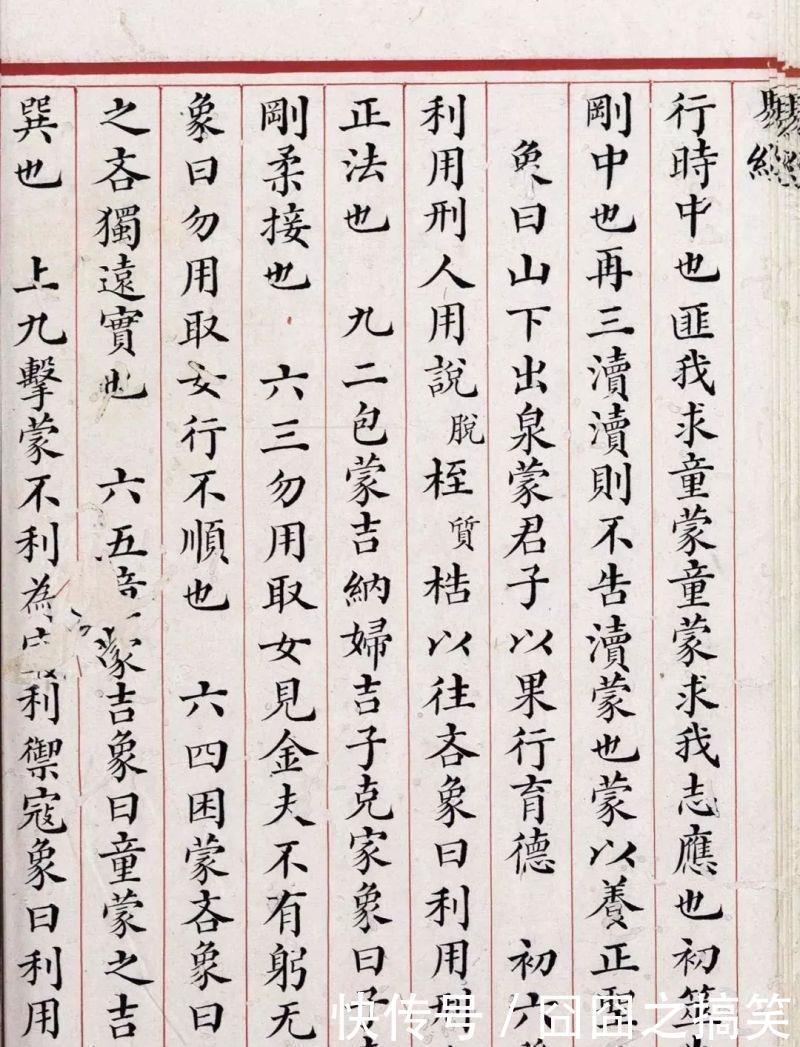 易經
行時中也匪我求童蒙童蒙求我志應也初筮
剛中也再三瀆瀆則不告瀆蒙也蒙以養正聖
象曰山下出泉蒙君子以果行育德 初六
利用刑人用說脫桎質梏以往吝象曰利用刑
正法也 九二包蒙吉納婦吉子克家象曰子
剛柔接也 六三勿用取女見金夫不有躬无
象曰勿用取女行不順也 六四困蒙吝象曰
之吝獨遠實也 六五童蒙吉象曰童蒙之吉
巽也 上九擊蒙不利為寇利禦寇象曰利用
快传号/囧囧之搞笑